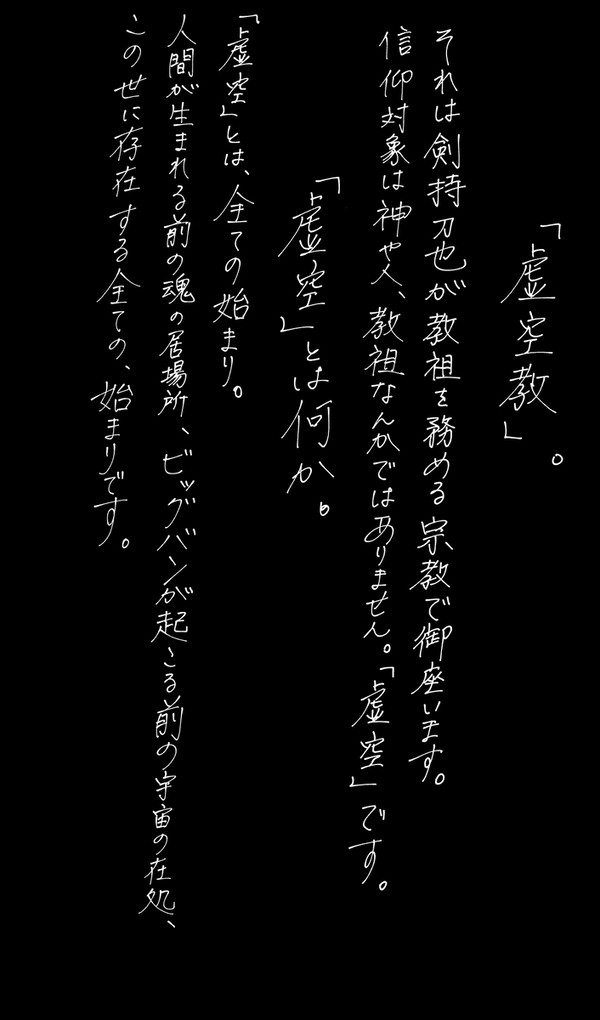 「虚空教」。
それは剣持刀也が教祖を務める宗教で御座います。
信仰対象は神や人、教祖なんかではありません。「虚空」です。
「虚空」とは何か。
「虚空」とは、全ての始まり。
人間が生まれる前の魂の居場所、ビッグバンが起こる前の宇宙の在処、
この世に存在する全ての、始まりです。